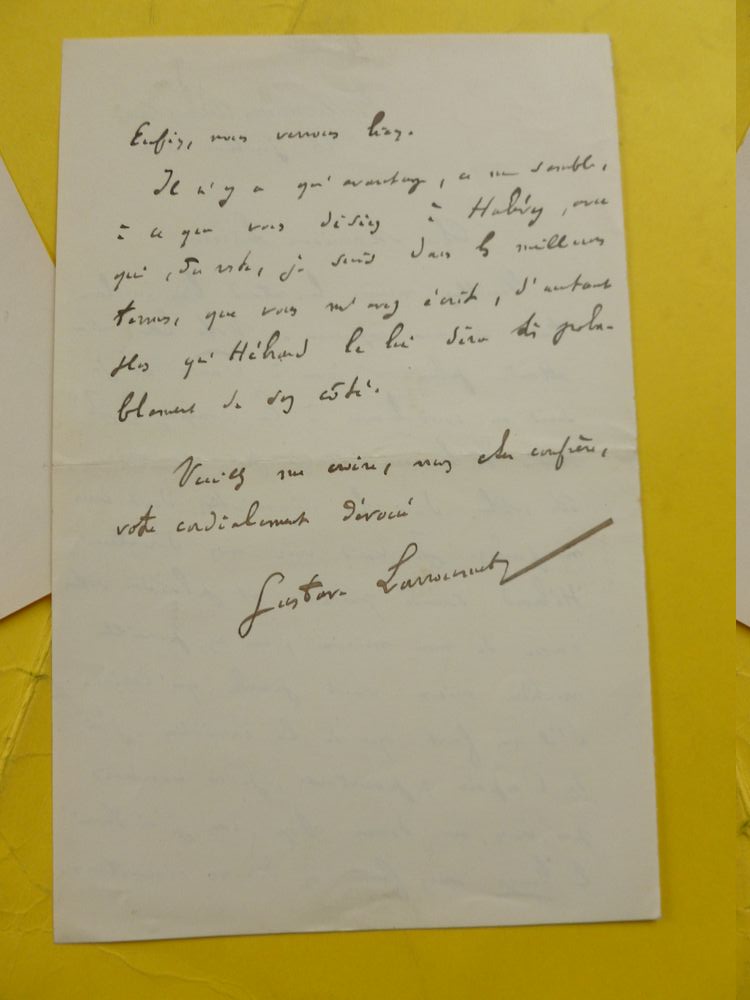 Enfin, nous verrons bien.
Il n'y a qu'avantage, ce me semble,
à ce que vous disiez à Halévy, avec
qui, du reste, je suis dans les meilleurs
termes, que vous m'avez écrit, d'autant
plus qu'Hébrard le lui dira proba-
blement de son côté.
Veuillez me croire, mon cher confrère,
votre cordialement dévoué
Gustave Larroumet